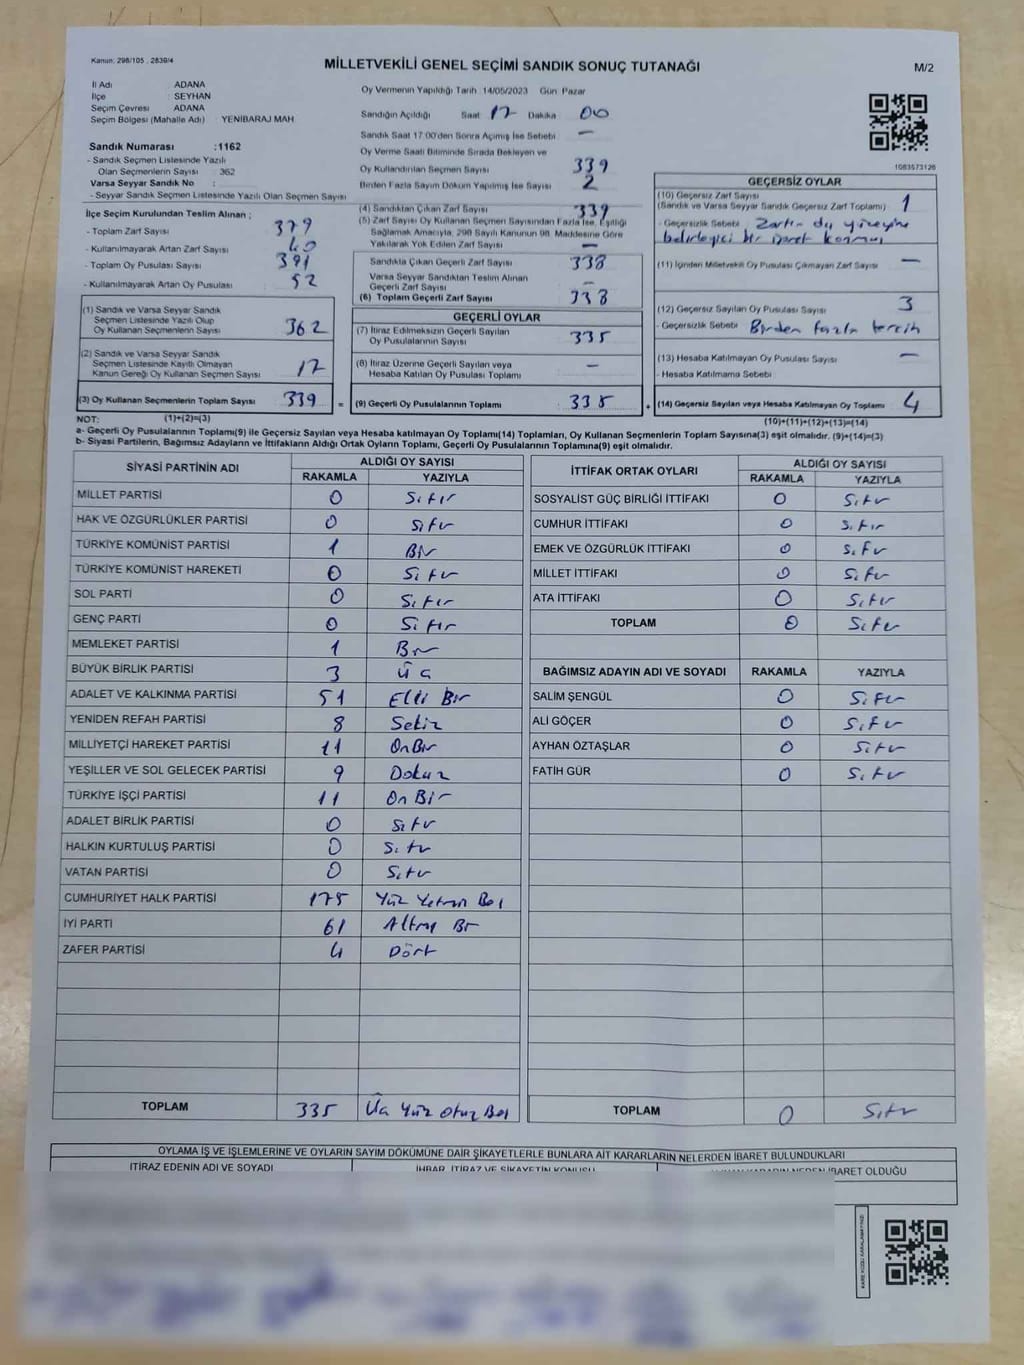 Kanun: 298/105 , 2839/4
MİLLETVEKİLİ GENEL SEÇİMİ SANDIK SONUÇ TUTANAĞI
M/2
İl Adı : ADANA
İlçe : SEYHAN
Seçim Çevresi : ADANA
Seçim Bölgesi (Mahalle Adı) : YENIBARAJ MAH
Sandık Numarası :1162
- Sandık Seçmen Listesinde Yazılı
Olan Seçmenlerin Sayısı : 362
Varsa Seyyar Sandık No :
- Seyyar Sandık Seçmen Listesinde Yazılı Olan Seçmen Sayısı
İlçe Seçim Kurulundan Teslim Alınan ;
- Toplam Zarf Sayısı 379
- Kullanılmayarak Artan Zarf Sayısı 40
- Toplam Oy Pusulası Sayısı 391
- Kullanılmayarak Artan Oy Pusulası 52
(1) Sandık ve Varsa Seyyar Sandık
Seçmen Listesinde Yazılı Olup
Oy Kullanan Seçmenlerin Sayısı 362
(2) Sandık ve Varsa Seyyar Sandık
Seçmen Listesinde Kayıtlı Olmayan
Kanun Gereği Oy Kullanan Seçmen Sayısı 17
(3) Oy Kullanan Seçmenlerin Toplam Sayısı 339 =
Oy Vermenin Yapıldığı Tarih 14/05/2023 Gün Pazar
Sandığın Açıldığı Saat 17 Dakika 00
Sandık Saat 17:00'den Sonra Açımış İse Sebebi —
Oy Verme Saati Bitiminde Sırada Bekleyen ve
Oy Kullandırılan Seçmen Sayısı 339
Birden Fazla Sayım Döküm Yapılmış İse Sayısı 2
(4) Sandıktan Çıkan Zarf Sayısı 339
(5) Zarf Sayısı Oy Kullanan Seçmen Sayısından Fazla İse, Eşitliği
Sağlamak Amacıyla, 298 Sayılı Kanunun 98. Maddesine Göre
Yakılarak Yok Edilen Zarf Sayısı —
Sandıkta Çıkan Geçerli Zarf Sayısı 338
Varsa Seyyar Sandıktan Teslim Alınan
Geçerli Zarf Sayısı —
(6) Toplam Geçerli Zarf Sayısı 338
GEÇERLİ OYLAR
(7) İtiraz Edilmeksizin Geçerli Sayılan
Oy Pusulalarının Sayısı 335
(8) İtiraz Üzerine Geçerli Sayılan veya
Hesaba Katılan Oy Pusulası Toplamı —
(9) Geçerli Oy Pusulalarının Toplamı 335 +
1083573126
GEÇERSİZ OYLAR
(10) Geçersiz Zarf Sayısı
(Sandık ve Varsa Seyyar Sandık Geçersiz Zarf Toplamı) 1
- Geçersizlik Sebebi Zarfın dış yüzeyine
belirleyici bir işaret konmuş
(11) İçinden Milletvekili Oy Pusulası Çıkmayan Zarf Sayısı —
(12) Geçersiz Sayılan Oy Pusulası Sayısı 3
- Geçersizlik Sebebi Birden fazla tercih
(13) Hesaba Katılmayan Oy Pusulası Sayısı —
- Hesaba Katılmama Sebebi
(14) Geçersiz Sayılan veya Hesaba Katılmayan Oy Toplamı 4
NOT: (1)+(2)=(3)
(10)+(11)+(12)+(13)=(14)
a- Geçerli Oy Pusulalarının Toplamı(9) ile Geçersiz Sayılan veya Hesaba katılmayan Oy Toplamı(14) Toplamları, Oy Kullanan Seçmenlerin Toplam Sayısına(3) eşit olmalıdır. (9)+(14)=(3)
b- Siyasi Partilerin, Bağımsız Adayların ve İttifakların Aldığı Ortak Oyların Toplamı, Geçerli Oy Pusulalarının Toplamına(9) eşit olmalıdır.
SİYASİ PARTİNİN ADI ALDIĞI OY SAYISI
RAKAMLA YAZIYLA
MİLLET PARTİSİ 0 Sıfır
HAK VE ÖZGÜRLÜKLER PARTİSİ 0 Sıfır
TÜRKİYE KOMÜNİST PARTİSİ 1 Bir
TÜRKİYE KOMÜNİST HAREKETİ 0 Sıfır
SOL PARTİ 0 Sıfır
GENÇ PARTİ 0 Sıfır
MEMLEKET PARTİSİ 1 Bir
BÜYÜK BİRLİK PARTİSİ 3 Üç
ADALET VE KALKINMA PARTİSİ 51 Elli Bir
YENİDEN REFAH PARTİSİ 8 Sekiz
MİLLİYETÇİ HAREKET PARTİSİ 11 On Bir
YEŞİLLER VE SOL GELECEK PARTİSİ 9 Dokuz
TÜRKİYE İŞÇİ PARTİSİ 11 On Bir
ADALET BİRLİK PARTİSİ 0 Sıfır
HALKIN KURTULUŞ PARTİSİ 0 Sıfır
VATAN PARTİSİ 0 Sıfır
CUMHURİYET HALK PARTİSİ 175 Yüz Yetmiş Beş
İYİ PARTİ 61 Altmış Bir
ZAFER PARTİSİ 4 Dört
TOPLAM 335 Üç Yüz Otuz Beş
İTTİFAK ORTAK OYLARI ALDIĞI OY SAYISI
RAKAMLA YAZIYLA
SOSYALIST GÜÇ BİRLİĞİ İTTİFAKI 0 Sıfır
CUMHUR İTTİFAKI 0 Sıfır
EMEK VE ÖZGÜRLÜK İTTİFAKI 0 Sıfır
MİLLET İTTİFAKI 0 Sıfır
ATA İTTİFAKI 0 Sıfır
TOPLAM 0 Sıfır
BAĞIMSIZ ADAYIN ADI VE SOYADI RAKAMLA YAZIYLA
SALİM ŞENGÜL 0 Sıfır
ALİ GÖÇER 0 Sıfır
AYHAN ÖZTAŞLAR 0 Sıfır
FATİH GÜR 0 Sıfır
TOPLAM 0 Sıfır
OYLAMA İŞ VE İŞLEMLERİNE VE OYLARIN SAYIM DÖKÜMÜNE DAİR ŞİKAYETLERLE BUNLARA AİT KARARLARIN NELERDEN İBARET BULUNDUKLARI
İTİRAZ EDENİN ADI VE SOYADI İHBAR, İTİRAZ VE ŞİKAYETİN KONUSU KARARIN NEDEN İBARET OLDUĞU